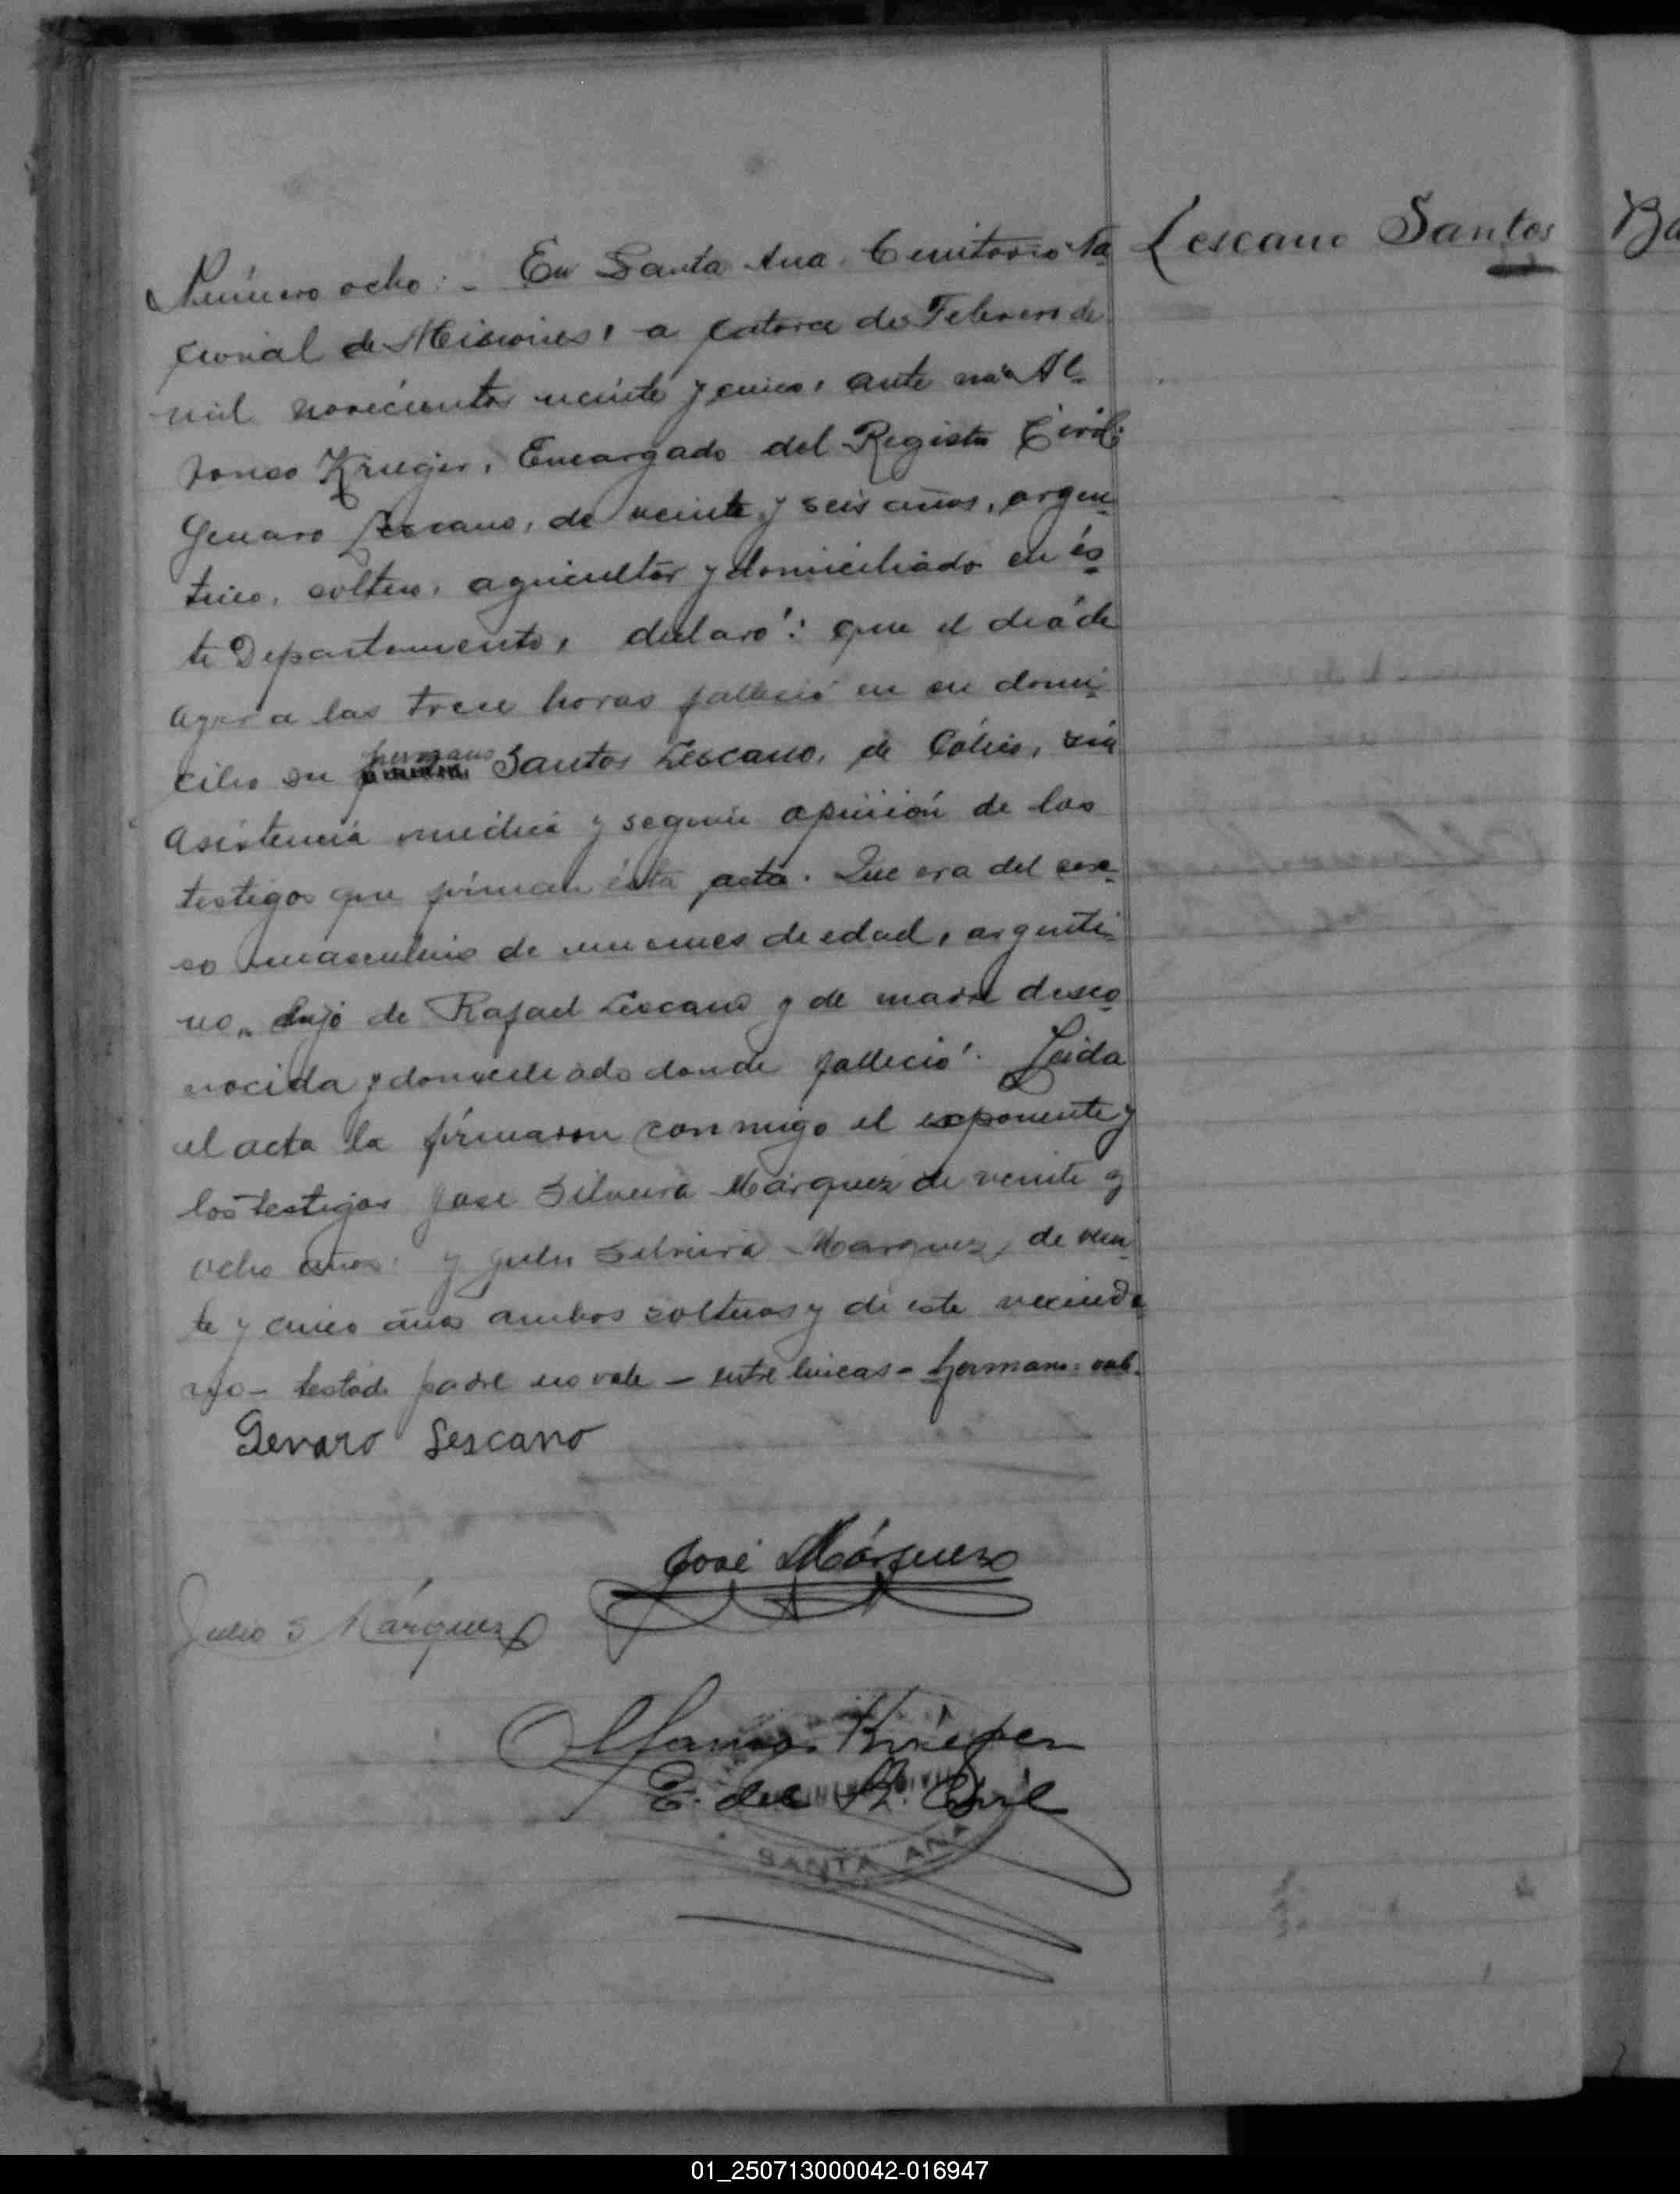 Lescano Santos
Ba
Número ocho: - En Santa Ana Territorio Na
cional de Misiones, a catorce de Febrero de
mil novecientos veinte y cinco, ante mi Al
fonso Krieger, Encargado del Registro Civil:
Genaro Lescano, de veinte y seis años, argen
tino, soltero, agricultor y domiciliado en és
te Departamento, declaró: que el día de
ayer a las trece horas falleció en su domi
cilio su hermano Santos Lescano, de Cólico, sin
asistencia medica y segun opinión de los
testigos que firman ésta acta. Que era del sexe
so masculino de un mes de edad, argenti
no, hijo de Rafael Lescano y de madre desco
nocida y domiciliado donde falleció. Leida
el acta la firmaron conmigo el exponente y
los testigos José Silveira Márquez de veinte y
ocho años y Julio Silveira Marquez, de vein
te y cinco años ambos solteros y de este vecinda
rio - testado padre no vale - entre lineas - hermano = vale.
Genaro Lescano
José Márquez
Julio S Márquez
Alfonso Krieger
E. del R. Civil
SANTA ANA
01_250713000042-016947